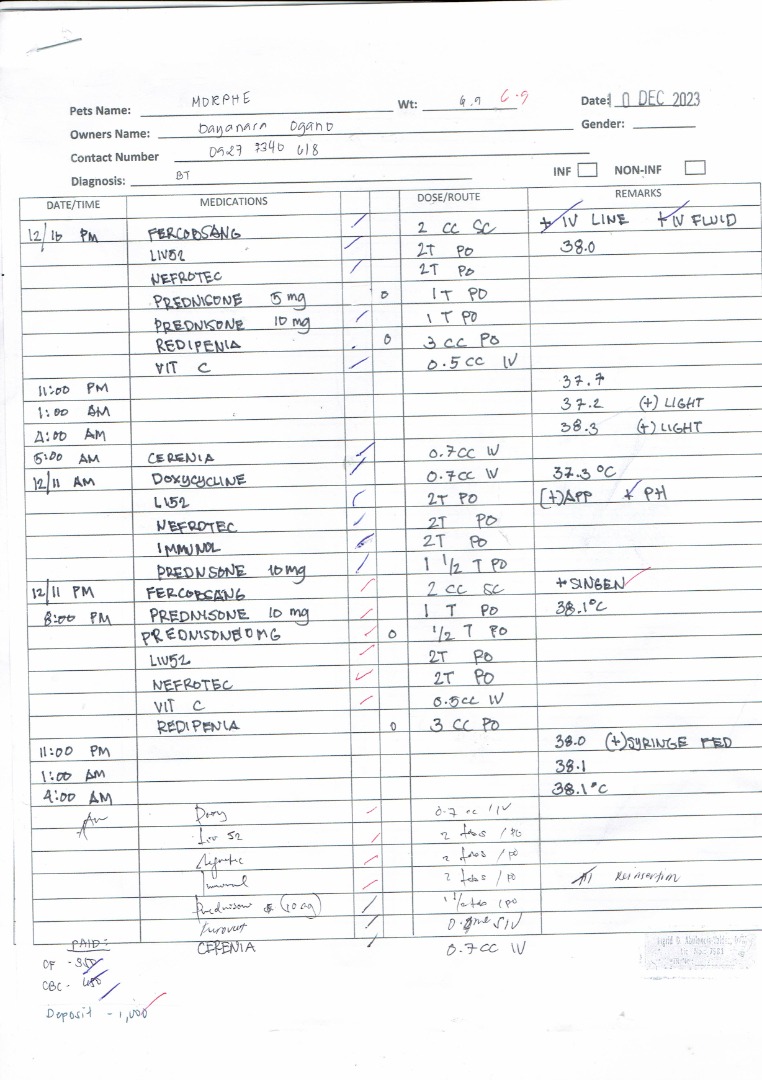 Pets Name: MORPHE Wt: 6.9 6.9 Date: 10 DEC 2023
Owners Name: Dayanara Ogano Gender:
Contact Number 0927 7340 618
Diagnosis: BT INF NON-INF
DATE/TIME MEDICATIONS DOSE/ROUTE REMARKS
12/10 PM FERCOBSANG 2 CC SC + IV LINE + IV FLUID
LIV52 2T PO 38.0
NEFROTEC 2T PO
PREDNISONE 5 mg 0 1 T PO
PREDNISONE 10 mg 1 T PO
REDIPENIA 0 3 CC PO
VIT C 0.5 CC IV
11:00 PM 37.7
1:00 AM 37.2 (+) LIGHT
4:00 AM 38.3 (+) LIGHT
5:00 AM CERENIA 0.7CC IV
12/11 AM DOXYCYCLINE 0.7CC IV 37.3 °C
LI52 2T PO (+)APP + PH
NEFROTEC 2T PO
IMMUNOL 2T PO
PREDNSONE 10mg 1 1/2 T PO
12/11 PM FERCOBSANG 2 CC SC + SINGEN
8:00 PM PREDNISONE 10 mg 1 T PO 38.1°C
PREDNISONE 10 MG 0 1/2 T PO
LIV52 2T PO
NEFROTEC 2T PO
VIT C 0.5CC IV
REDIPENIA 0 3 CC PO
11:00 PM 38.0 (+)SYRINGE FED
1:00 AM 38.1
4:00 AM 38.1°C
AM Doxy 0.7 cc IV
Liv 52 2 tabs / PO
2 tabs / PO
Immunol 2 tabs / PO Reinsertion
Prednisone (10mg) 1 1/2 tab / PO
PAID: CERENIA 0.7CC IV
CF - 350
CBC - 450
Deposit - 1,000